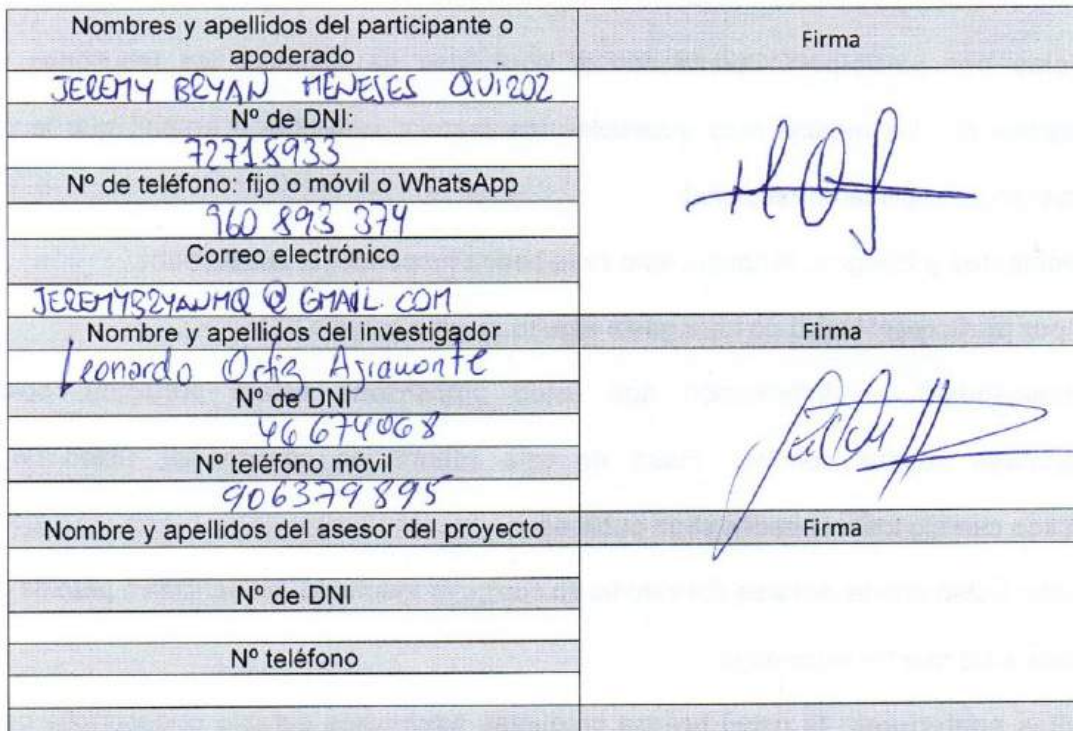 Nombres y apellidos del participante o
apoderado
Firma
JEREMY BRYAN MENESES QUIROZ
Nº de DNI:
72718933
Nº de teléfono: fijo o móvil o WhatsApp
960 893 374
Correo electrónico
JEREMYBRYANMQ@GMAIL.COM
Nombre y apellidos del investigador
Firma
Leonardo Ortiz Agramonte
Nº de DNI
46674068
Nº teléfono móvil
906379895
Nombre y apellidos del asesor del proyecto
Firma
Nº de DNI
Nº teléfono